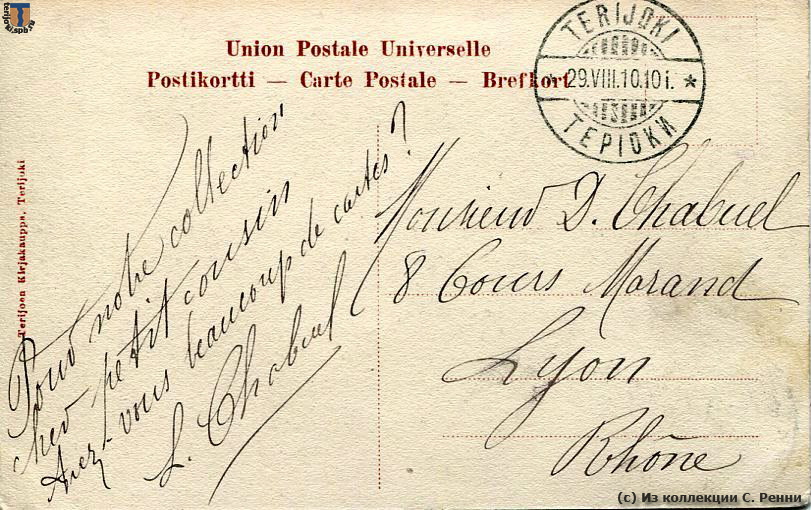 terijoki.spb.ru
Union Postale Universelle
Postikortti — Carte Postale — Brefkort
TERIJOKI
* 29.VIII.10.10 i. *
ТЕРІОКИ
Terijoen Kirjakauppa, Terijoki
Pour notre collection
cher petit cousin
Avez-vous beaucoup de cartes?
L. Chabuel
Monsieur D. Chabuel
8 Cours Morand
Lyon
Rhône
(с) Из коллекции С. Ренни